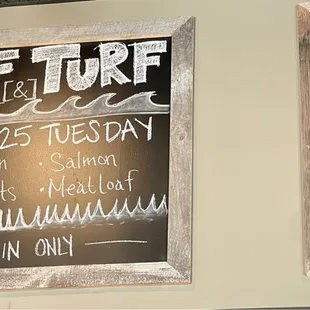 F TURF
[&]
25 TUESDAY
n · Salmon
ts · Meatloaf
IN ONLY